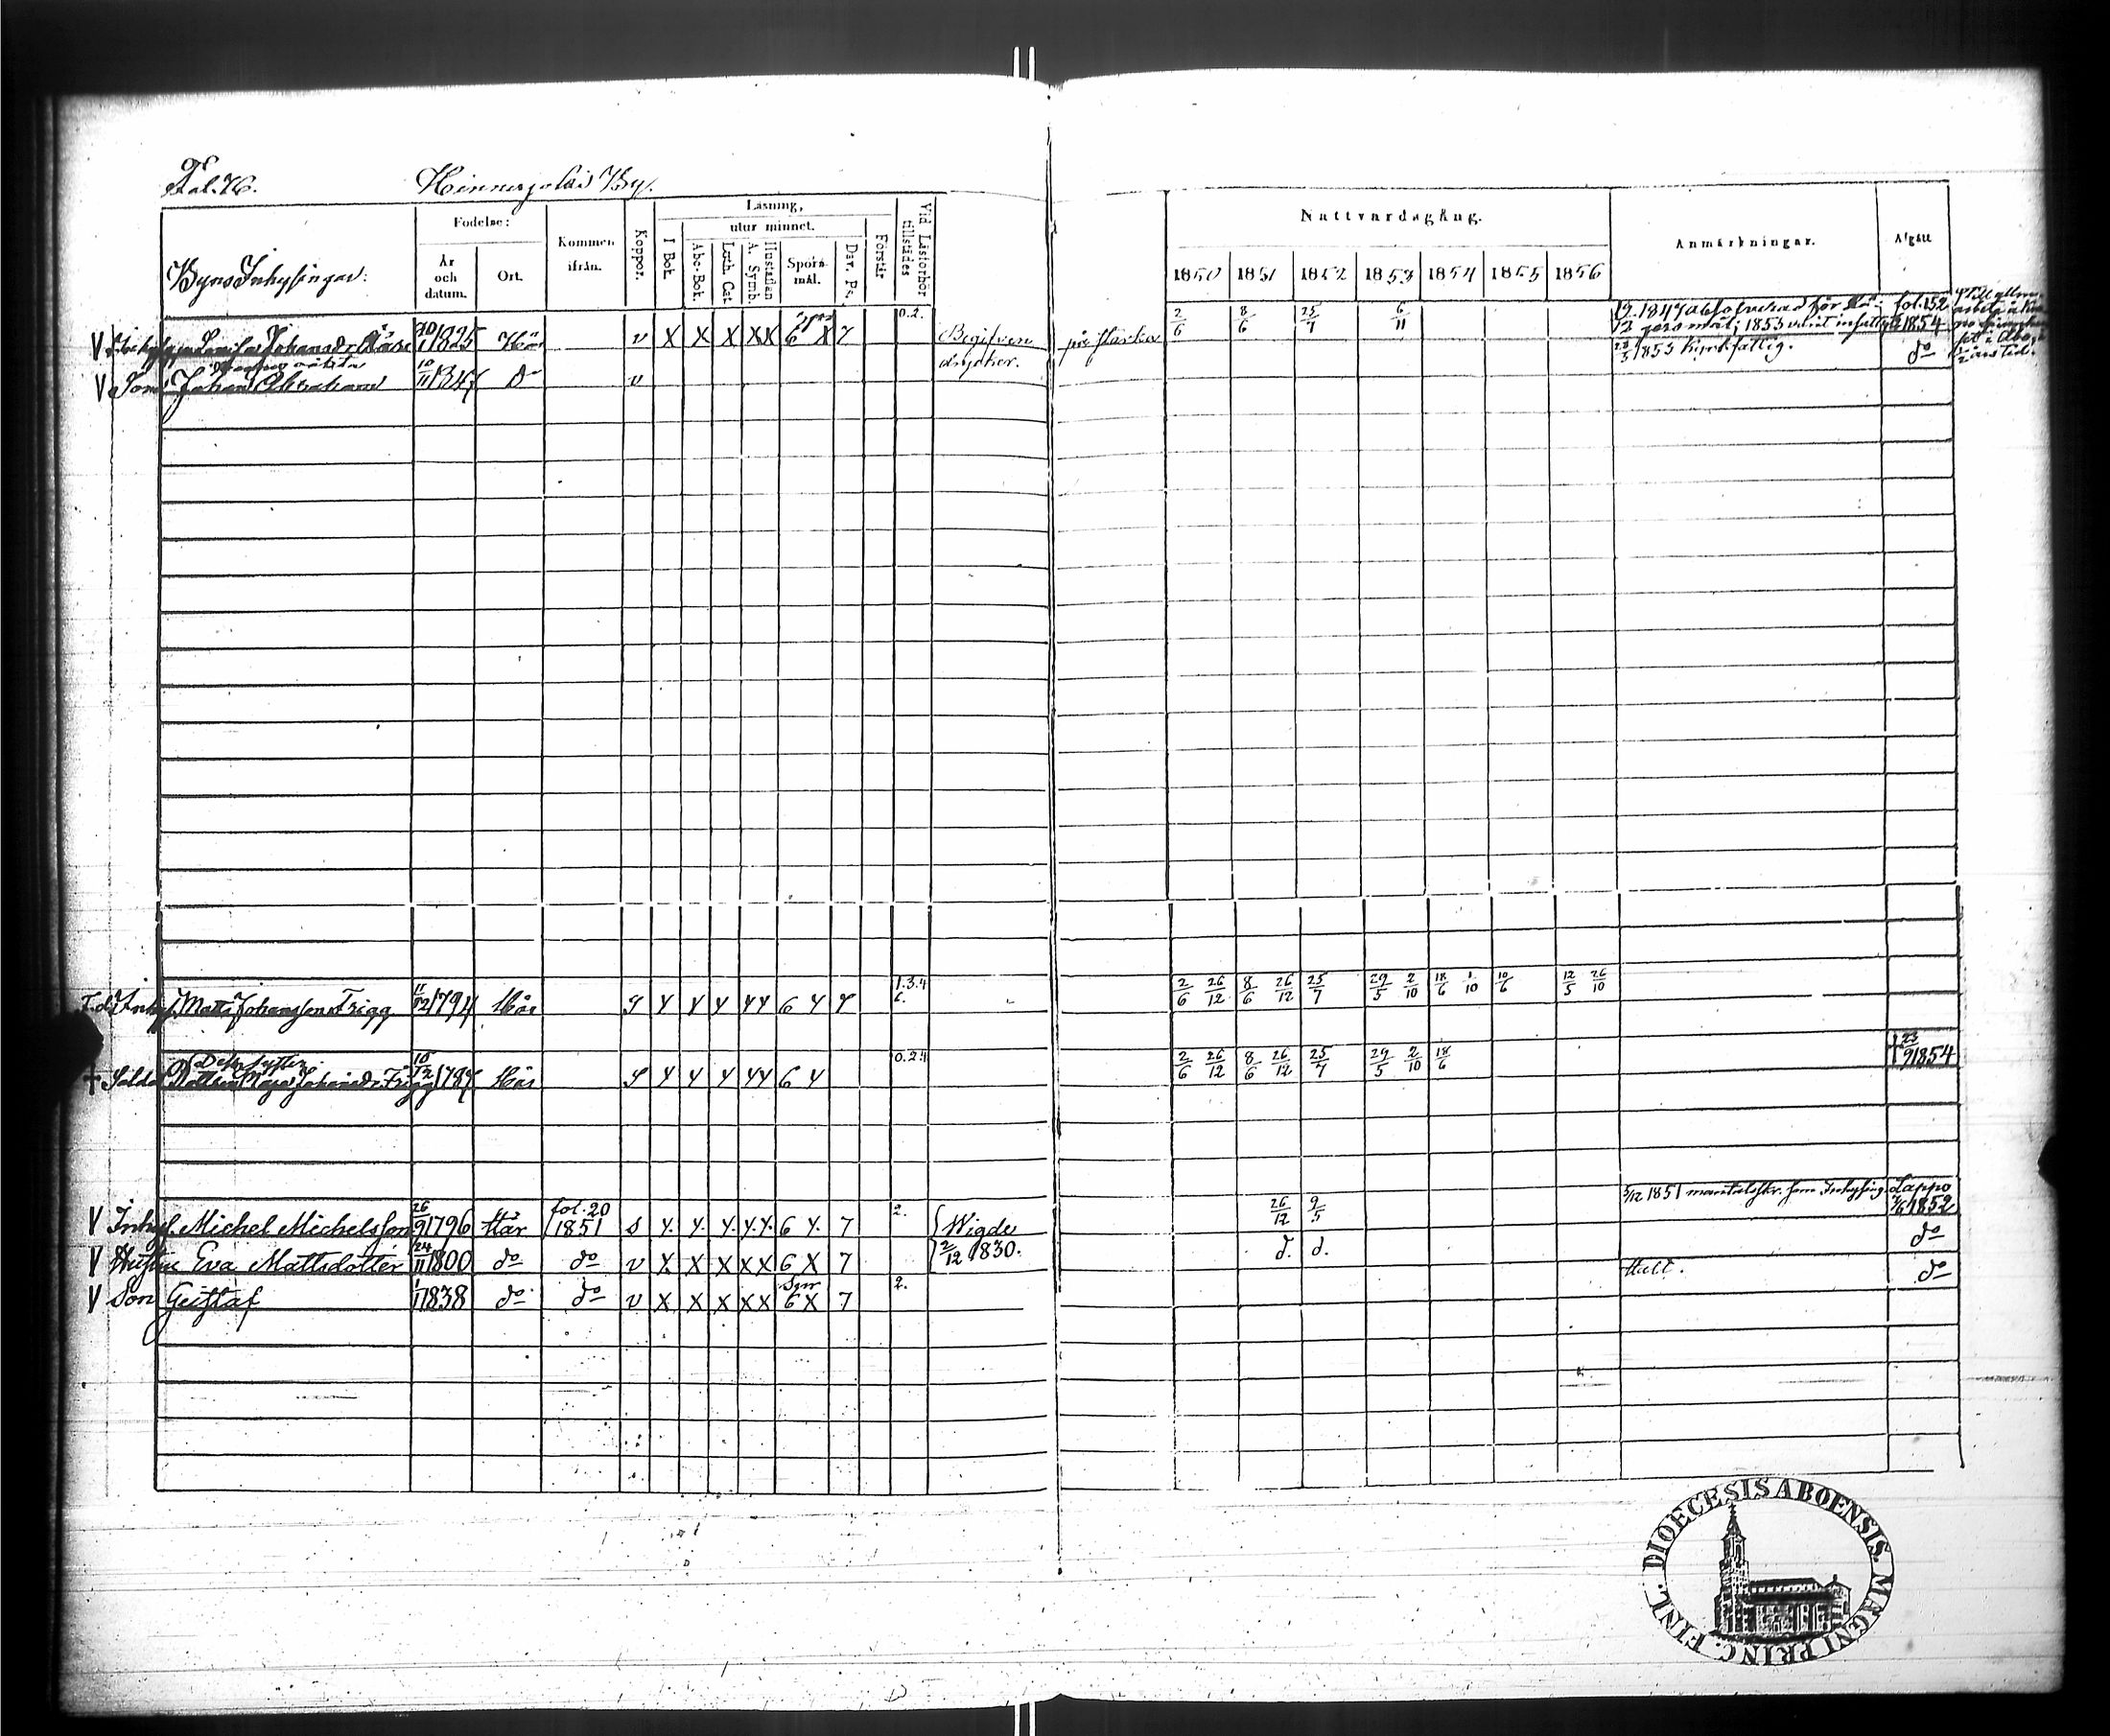 Fol. 76. Hinnerjoki By.
Byns Inhysingar:
Födelse:
År och datum.
Ort.
Kommen ifrån.
Koppor.
Läsning,
I Bok.
utur minnet.
Abc-Bok.
Luth. Cat
Hustaflan A. Symb.
Spörsmål.
Dav. Ps.
Förstår
Vid Läsförhör tillstädes
Nattvardsgång.
1850 1851 1852 1853 1854 1855 1856
Anmärkningar.
Afgått
V Johansdr 1825 Här v X X X XX 6 X 7 0.2. Begifven på starka 2/6 8/6 25/7 6/11 fol. 152
drycker. 1853 1854
V Son Johan Abraham 10/11 1847 do v 1853 do
Inhys. Matts Johansson Frigg 11/12 1794 Här S Y Y Y YY 6 Y 7 1.3.4 6. 2/6 26/12 8/6 26/12 25/7 29/5 2/10 18/6 1/10 10/6 12/5 26/10
Dess syster
† Maja Johansdr Frigg 10/12 1787 Här S Y Y Y YY 6 Y 0.2.4 2/6 26/12 8/6 26/12 25/7 29/5 2/10 18/6 † 23/9 1854
V Inhys. Michel Michelsson 26/9 1796 Här fol. 20 1851 s Y. Y. Y. Y.Y. 6 Y. 7 2. Wigde 26/12 9/5 5/12 1851 mantalskr. som Inhysing. Lappo 1852
V Hustru Eva Mattsdotter 24/11 1800 do do v X X X XX 6 X 7 2/12 1830. d. d. do
V Son Gustaf 1/1 1838 do do v X X X XX 6 X 7 2. Halt. do
DIOECESIS ABOENSIS. MAGNI PRINC. FINL.